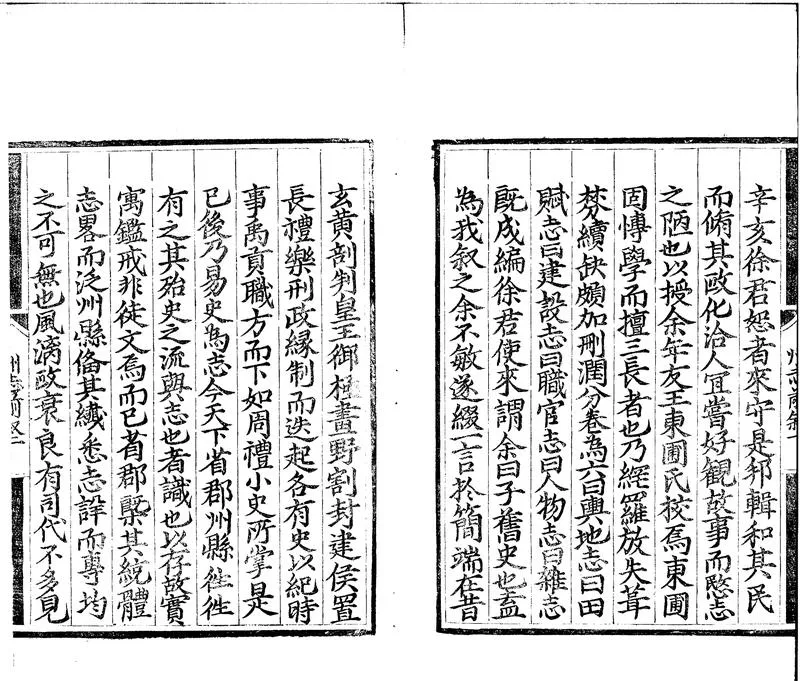 辛亥徐君恕者來守是邦輯和其民
而脩其政化洽人宜嘗好観故事而愍志
之陋也以授余年友王東圃氏校焉東圃
固慱學而擅三長者也乃網羅放失葺
棼續缺頗加刑潤分卷為六曰輿地志曰田
賦志曰建設志曰職官志曰人物志曰雜志
既成編徐君使來謂余曰子舊史也盍
為我叙之余不敏遂綴一言扵簡端在昔
玄黄剖判皇王御極畫野割封建侯置
長禮樂刑政緣制而迭起各有史以紀時
事禹貢職方而下如周禮小史所掌是
已後乃易史為志今天下省郡州縣徃徃
有之其殆史之流與志也者識也以存故實
寓鑑戒非徒文焉而已省郡槩其統體
志畧而泛州縣俻其纎悉志詳而專均
之不可無也風漓政衰良有司代不多見